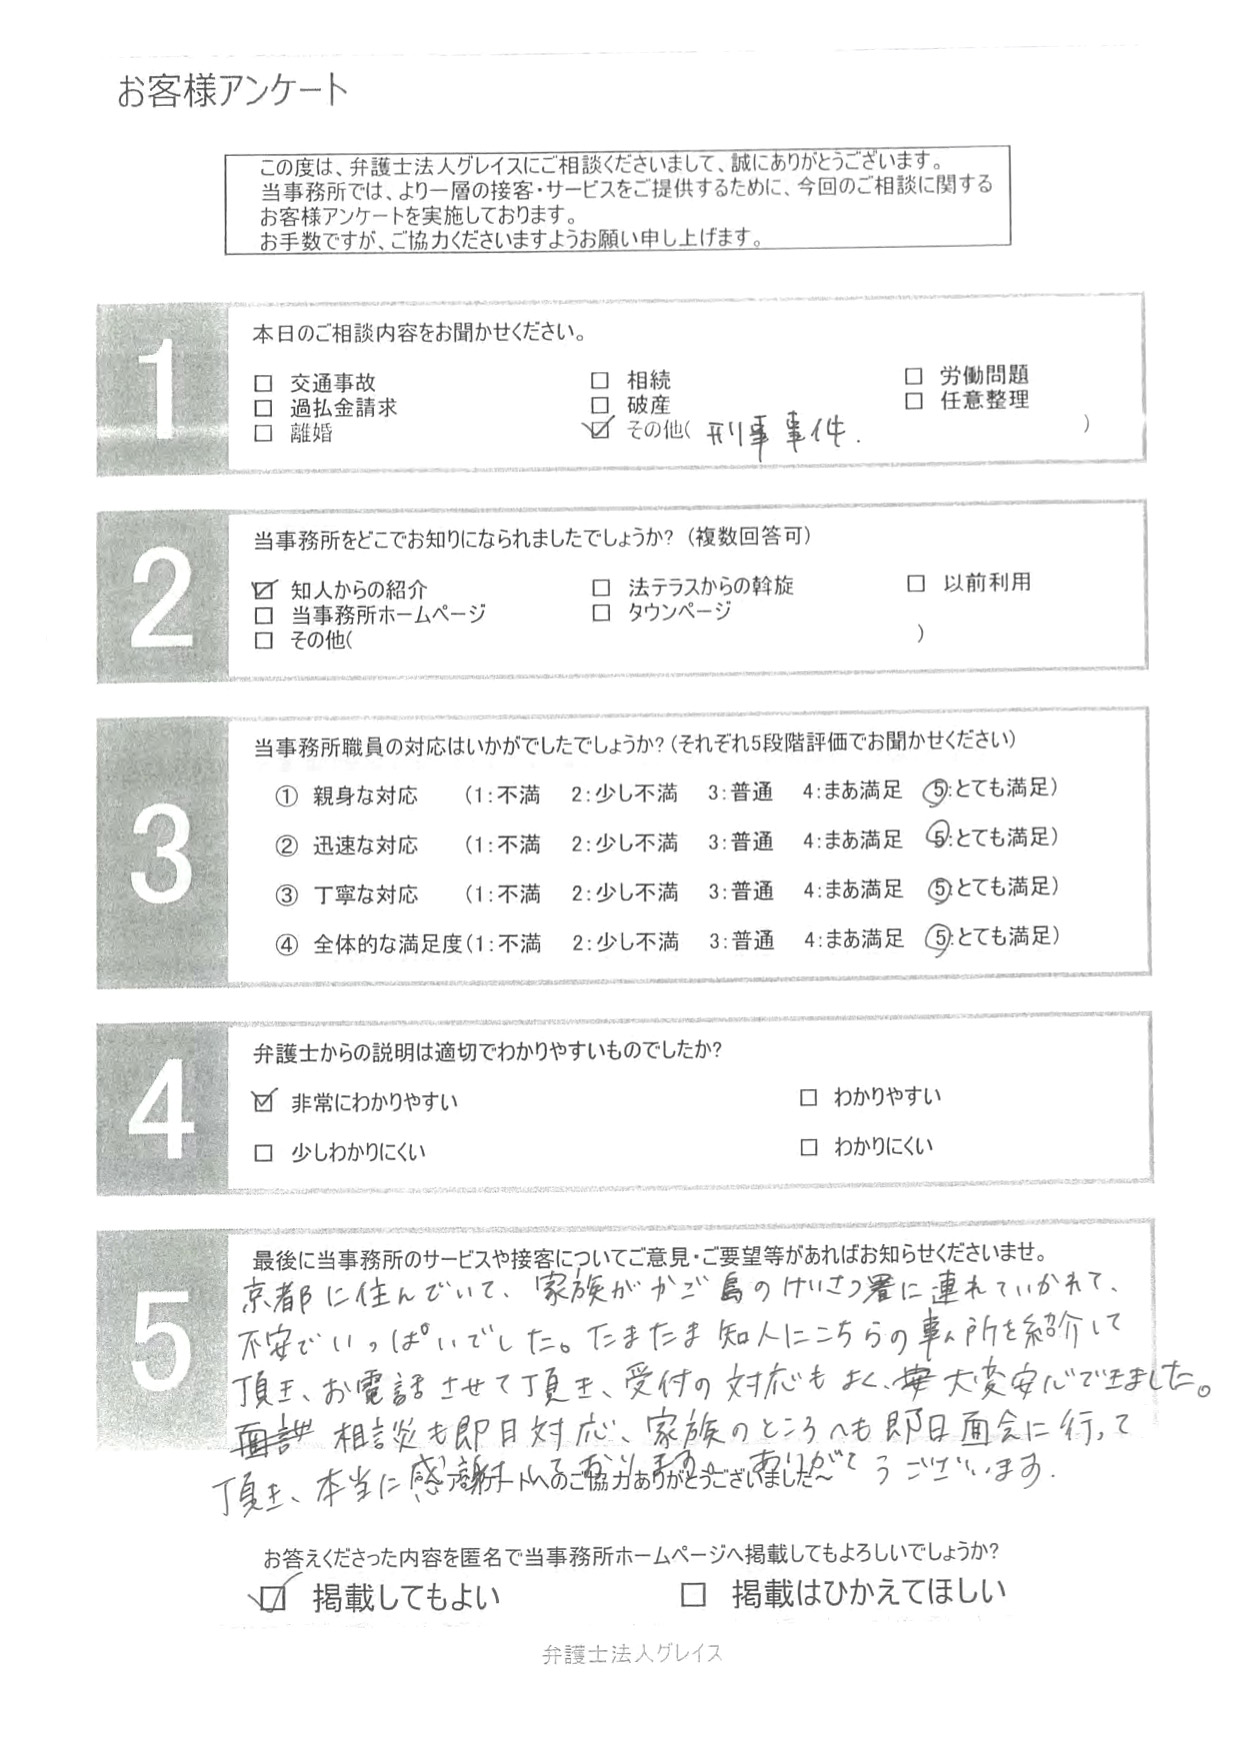 お客様アンケート
この度は、弁護士法人グレイスにご相談くださいまして、誠にありがとうございます。
当事務所では、より一層の接客・サービスをご提供するために、今回のご相談に関する
お客様アンケートを実施しております。
お手数ですが、ご協力くださいますようお願い申し上げます。
1
本日のご相談内容をお聞かせください。
□ 交通事故 □ 相続 □ 労働問題
□ 過払金請求 □ 破産 □ 任意整理
□ 離婚 ☑ その他( 刑事事件. )
2
当事務所をどこでお知りになられましたでしょうか?(複数回答可)
☑ 知人からの紹介 □ 法テラスからの斡旋 □ 以前利用
□ 当事務所ホームページ □ タウンページ
□ その他( )
3
当事務所職員の対応はいかがでしたでしょうか?(それぞれ5段階評価でお聞かせください)
① 親身な対応 (1:不満 2:少し不満 3:普通 4:まあ満足 5:とても満足)
② 迅速な対応 (1:不満 2:少し不満 3:普通 4:まあ満足 5:とても満足)
③ 丁寧な対応 (1:不満 2:少し不満 3:普通 4:まあ満足 5:とても満足)
④ 全体的な満足度(1:不満 2:少し不満 3:普通 4:まあ満足 5:とても満足)
4
弁護士からの説明は適切でわかりやすいものでしたか?
☑ 非常にわかりやすい □ わかりやすい
□ 少しわかりにくい □ わかりにくい
5
最後に当事務所のサービスや接客についてご意見・ご要望等があればお知らせくださいませ。
京都に住んでいて、家族がかご島のけいさつ署に連れていかれて、
不安でいっぱいでした。たまたま知人にこちらの事ム所を紹介して
頂き、お電話させて頂き、受付の対応もよく、大変安心できました。
相談も即日対応、家族のところへも即日面会に行って
頂き、本当に感謝しております。ありがとうございます.
アンケートへのご協力ありがとうございました～
お答えくださった内容を匿名で当事務所ホームページへ掲載してもよろしいでしょうか?
☑ 掲載してもよい □ 掲載はひかえてほしい
弁護士法人グレイス